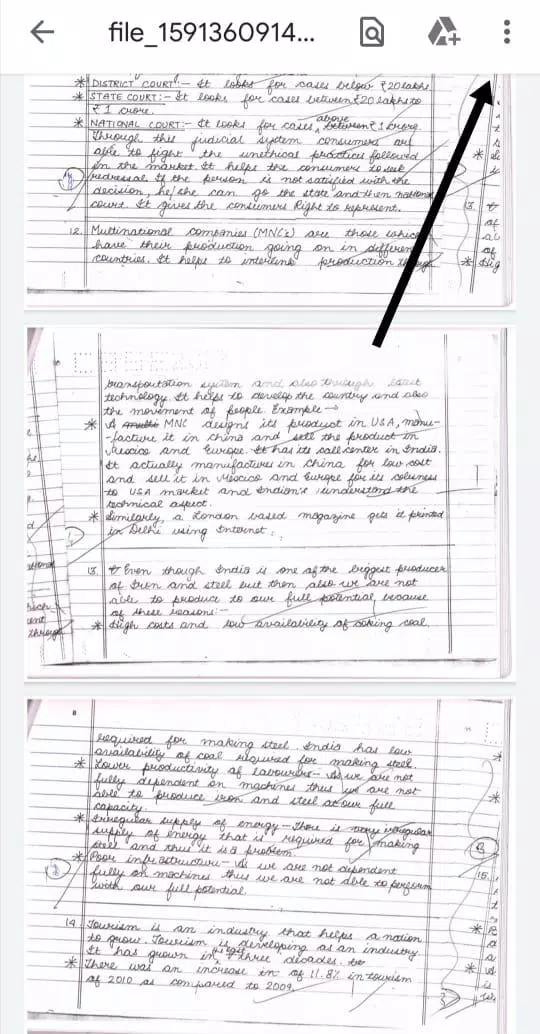 file_1591360914...
* DISTRICT COURT:- It looks for cases below ₹20 lakhs.
* STATE COURT:- It looks for cases between ₹20 lakhs to
₹1 crore.
* NATIONAL COURT:- It looks for cases above ₹1 crore.
Through this judicial system consumers are
able to fight the unethical practices followed
in the market. It helps the consumers to seek
redressal. If the person is not satisfied with the
decision, he/she can go the state and then national
court. It gives the consumers Right to represent.
12. Multinational companies (MNC's) are those which
have their production going on in different
countries. It helps to interlink production through
transportation system and also through
technology. It helps to develop the country and also
the movement of people. Example →
* A MNC designs its product in USA, manu-
-facture it in China and sell the product in
Mexico and Europe. It has its call center in India.
It actually manufactures in China for low cost
and sell it in Mexico and Europe for its closness
to USA market and Indian's understand the
technical aspect.
* Similarly, a London based magazine gets it printed
in Delhi using Internet.
13. Even though India is one of the biggest producer
of Iron and steel but then also we are not
able to produce to our full potential because
of these reasons:-
* High costs and low availability of coking coal
required for making steel. India has low
availability of coal required for making steel.
* Lower productivity of labourers- As we are not
fully dependent on machines thus we are not
able to produce iron and steel at our full
capacity.
* Irregular supply of energy - There is irregular
supply of energy that is required for making
steel and thus it is a problem.
* Poor infrastructure - As we are not dependent
fully on machines thus we are not able to perform
with our full potential.
14. Tourism is an industry that helps a nation
to grow. Tourism is developing as an industry.
It has grown in past three decades.
* There was an increase in of 11.8% in tourism
of 2010 as compared to 2009.
13.
15.